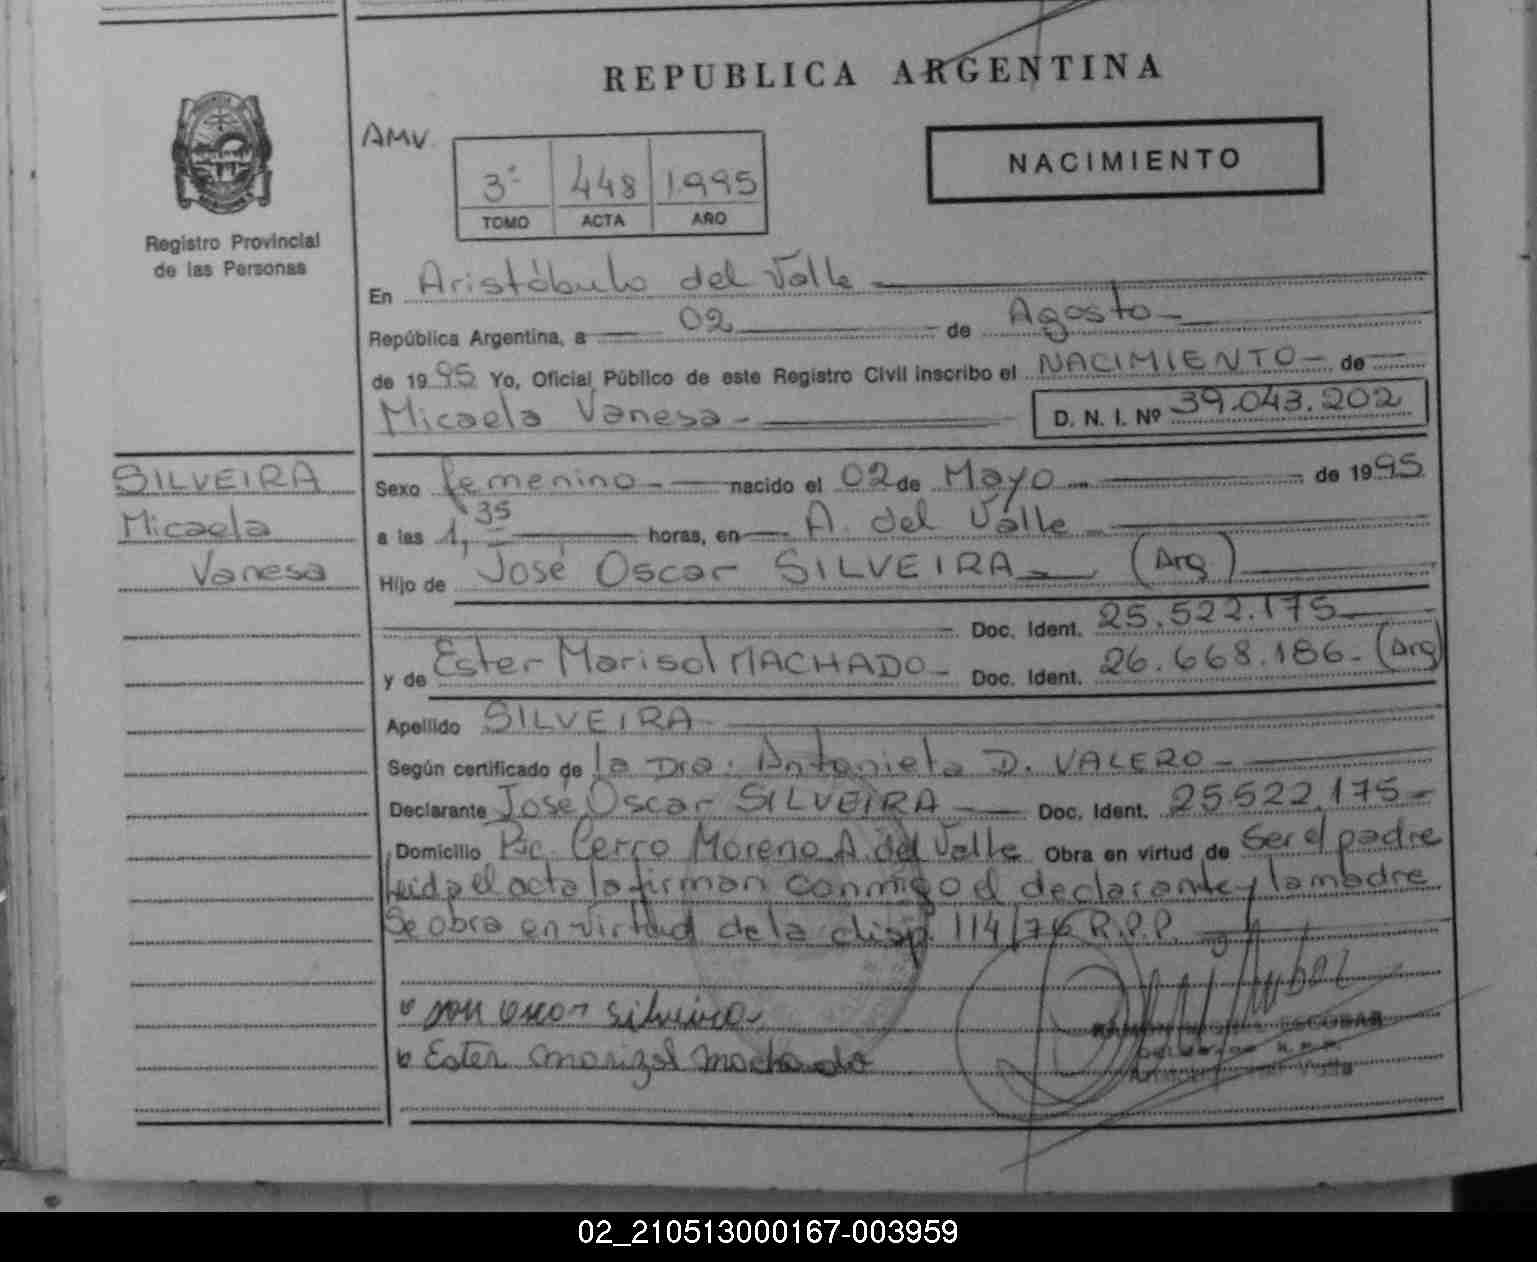 REPUBLICA ARGENTINA
AMV.
3º 448 1995
TOMO ACTA AÑO
NACIMIENTO
Registro Provincial
de las Personas
En Aristóbulo del Valle
República Argentina, a 02 de Agosto
de 1995 Yo, Oficial Público de este Registro Civil inscribo el NACIMIENTO de
Micaela Vanesa D. N. I. Nº 39.043.202
SILVEIRA
Micaela
Vanesa
Sexo femenino nacido el 02 de Mayo de 1995
a las 1,35 horas, en A. del Valle
Hijo de José Oscar SILVEIRA (Arg)
Doc. Ident. 25.522.175
y de Ester Marisol MACHADO Doc. Ident. 26.668.186 (Arg)
Apellido SILVEIRA
Según certificado de la Dra. Antonieta D. VALERO
Declarante José Oscar SILVEIRA Doc. Ident. 25522.175
Domicilio Pic. Cerro Moreno A. del Valle Obra en virtud de Ser el padre
Leida el acta la firman conmigo el declarante y la madre
Se obra en virtud de la disp. 114/76 R.P.P.
Ester Marizol Machado
ESCOBAR
02_210513000167-003959